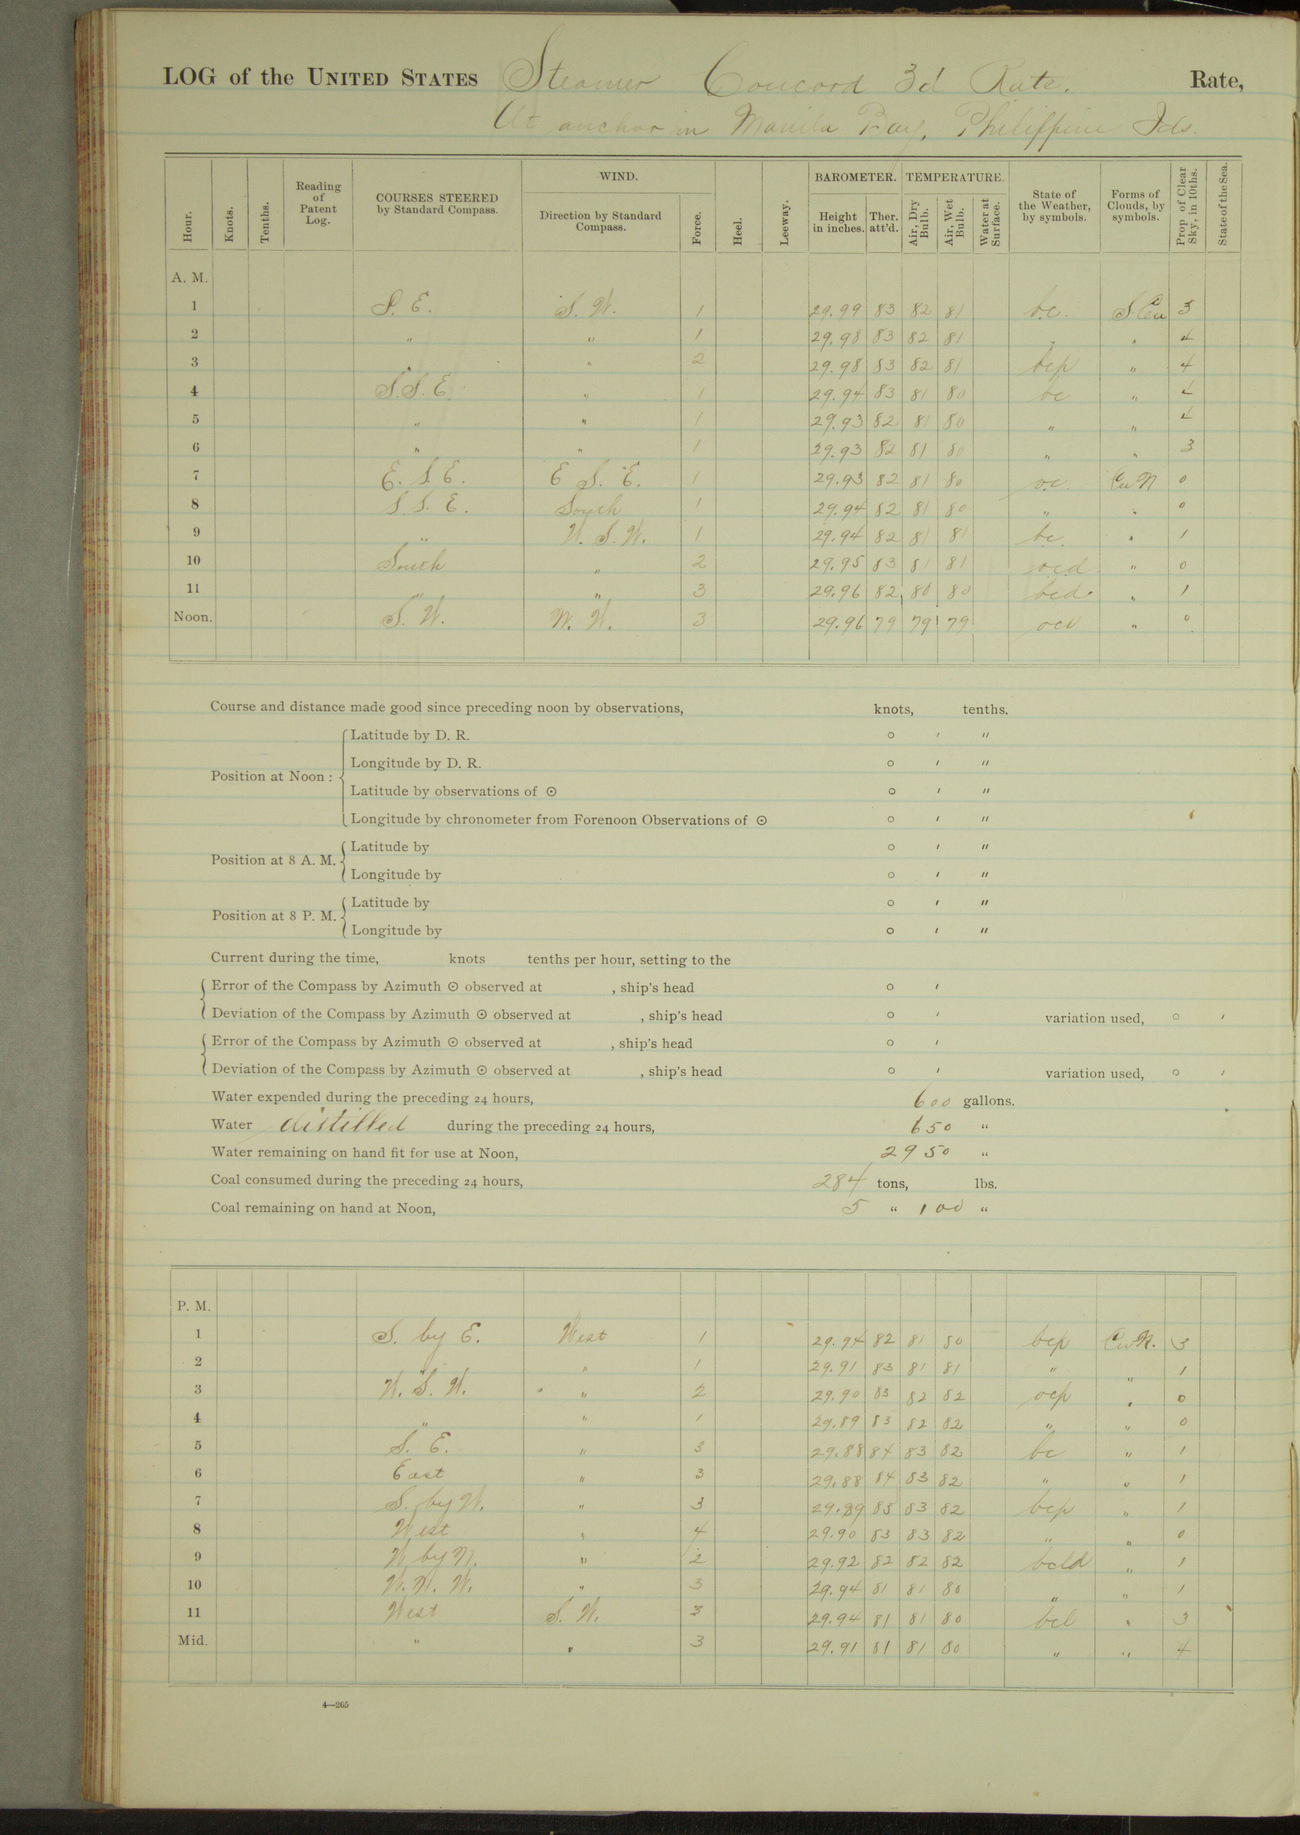 LOG of the UNITED STATES Steamer Concord 3d Rate. Rate,
At anchor in Manila Bay, Philippine Ids.
Hour. Knots. Tenths. Reading of Patent Log. COURSES STEERED by Standard Compass. WIND. Direction by Standard Compass. Force. Heel. Leeway. BAROMETER. Height in inches. Ther. att'd. TEMPERATURE. Air, Dry Bulb. Air, Wet Bulb. Water at Surface. State of the Weather, by symbols. Forms of Clouds, by symbols. Prop. of Clear Sky, in 10ths. State of the Sea.
A. M.
1 S. E. S. W. 1 29.99 83 82 81 bc. S.Cu 3
2 " " 1 29.98 83 82 81 " " 4
3 " " 2 29.98 83 82 81 bcp " 4
4 S.S.E. " 1 29.94 83 81 80 bc " 4
5 " " 1 29.93 82 81 80 " " 4
6 " " 1 29.93 82 81 80 " " 3
7 E. S. E. E S. E. 1 29.93 82 81 80 oc. Cu N 0
8 S. S. E. South 1 29.94 82 81 80 " " 0
9 " W. S. W. 1 29.94 82 81 81 bc. " 1
10 South " 2 29.95 83 81 81 ocd " 0
11 " " 3 29.96 82 80 80 bcd. " 1
Noon. S. W. N. W. 3 29.96 79 79 79 " 0
Course and distance made good since preceding noon by observations, knots, tenths.
Position at Noon: Latitude by D. R. ° ′ ″
Longitude by D. R. ° ′ ″
Latitude by observations of ⊙ ° ′ ″
Longitude by chronometer from Forenoon Observations of ⊙ ° ′ ″
Position at 8 A. M. Latitude by ° ′ ″
Longitude by ° ′ ″
Position at 8 P. M. Latitude by ° ′ ″
Longitude by ° ′ ″
Current during the time, knots tenths per hour, setting to the
Error of the Compass by Azimuth ⊙ observed at , ship's head ° ′
Deviation of the Compass by Azimuth ⊙ observed at , ship's head ° ′ variation used, ° ′
Error of the Compass by Azimuth ⊙ observed at , ship's head ° ′
Deviation of the Compass by Azimuth ⊙ observed at , ship's head ° ′ variation used, ° ′
Water expended during the preceding 24 hours, 600 gallons.
Water distilled during the preceding 24 hours, 650 "
Water remaining on hand fit for use at Noon, 2950 "
Coal consumed during the preceding 24 hours, 284 tons, lbs.
Coal remaining on hand at Noon, 5 " 100 "
P. M.
1 S. by E. West 1 29.94 82 81 80 bcp Cu N. 3
2 " " 1 29.91 83 81 81 " " 1
3 W. S. W. " 2 29.90 83 82 82 ocp " 0
4 " " 1 29.89 83 82 82 " " 0
5 S. E. " 3 29.88 84 83 82 bc " 1
6 East " 3 29.88 84 83 82 " " 1
7 S. by W. " 3 29.89 85 83 82 bcp " 1
8 West " 4 29.90 83 83 82 " " 0
9 W by N. " 2 29.92 82 82 82 bcld " 1
10 W. N. W. " 3 29.94 81 81 80 " " 1
11 West S. W. 3 29.94 81 81 80 bcl " 3
Mid. " " 3 29.91 81 81 80 " " 4
4—265